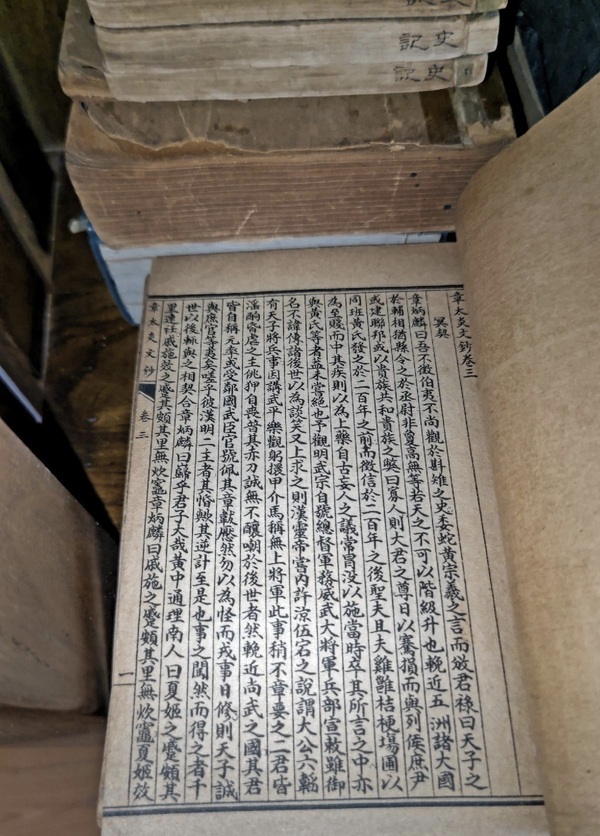 史記
史記
章太炎文鈔卷三
冥契
章炳麟曰吾不徵伯夷不尚觀於斟雉之史委蛇黃宗羲之言而放君祿曰天子之
於輔相猶縣令之於丞尉非夐高無等若天之不可以階級升也輓近五洲諸大國
或建聯邦或以貴族共和貴族之曰寡人則大君之尊日以騫損而與列侯庶尹
同班黃氏發之於二百年之前而徵信於二百年之後聖夫且夫雞雝桔梗場圃以
為至賤而中其疾則以為上藥自古妄人之議常冒沒以施當時卒其所言之中亦
與黃氏等者蓋未嘗絕也予觀明武宗自號總督軍務威武大將軍兵部宣敕雖御
名不諱傳諸後世以為談笑又上求之則漢靈帝嘗內許涼伍宕之說謂大公六韜
有天子將兵事因講武平樂觀躬擐甲介馬稱無上將軍此事稍不章要之二君皆
淫酗昏虐之主佻狎自喪昔其亦刀誠無不釀嘲於後世者然輓近尚武之國其君
皆自稱元率或受鄰國武臣官號佩其章韍應然勿以為怪而戎事日修則天子誠
與庶官等夷矣乎彼漢明二主者其惛其逆計至是也事之闇然而得之者千
世以後輒與之相契合章炳麟曰繇乎君子大哉黃中通理南人曰夏姬之蹙頞其
里逮社戚施效之蹙其頞其里無炊竈章炳麟曰戚施之蹙頞其里無炊竈夏姬效
章太炎文鈔
卷三
一